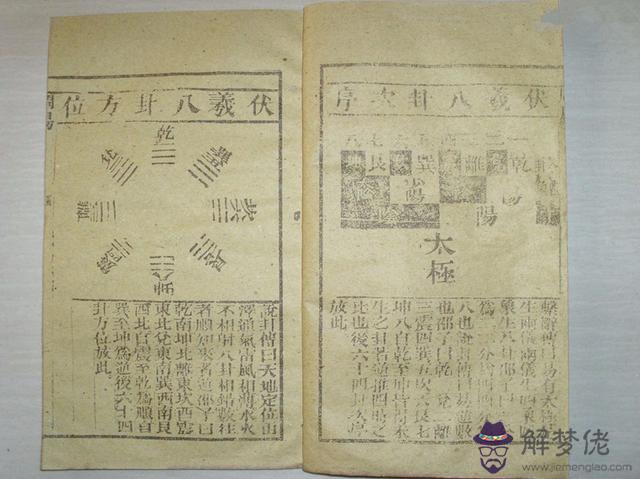 伏羲八卦次序
乾
離
巽
艮
陽
陽
太極
繫辭傳曰易有太極
生兩儀兩儀生四象
象生八卦邵子曰
為二二分為四四分為
八也說卦傳曰易逆數
也邵子曰乾一兌二離
三震四巽五坎六艮七
坤八自乾至坤皆得未
生之卦若逆推四時之
比也後六十四卦次序
放此
伏羲八卦方位
乾
說卦傳曰天地定位山
澤通氣雷風相薄水火
不相射八卦相錯數往
者順知來者逆邵子曰
乾南坤北離東坎西震
東北兌東南巽西南艮
西北自震至乾為順自
巽至坤為逆後六十四
卦方位放此
解梦佬
www.jiemenglao.com